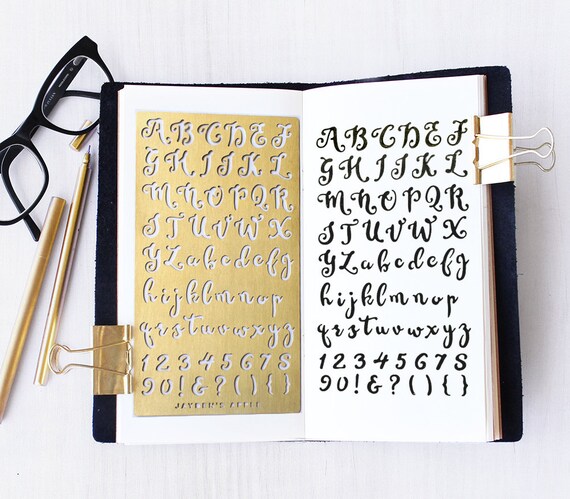 ABCDEF
GHIJKL
MNOPQR
STUVWX
YZabcdefg
hijklmnop
qrstuvwxyz
12345678
90!&?(){}
JAYDEN'S APPLE
ABCDEF
GHIJKL
MNOPQR
STUVWX
YZabcdefg
hijklmnop
qrstuvwxyz
12345678
90!&?(){}